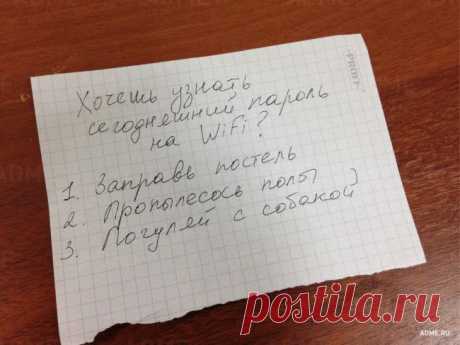 Хочешь узнать
сегодняшний пароль
на WiFi?
1. Заправь постель
2. Пропылесось полы
3. Погуляй с собакой
postila.ru
ADME.RU